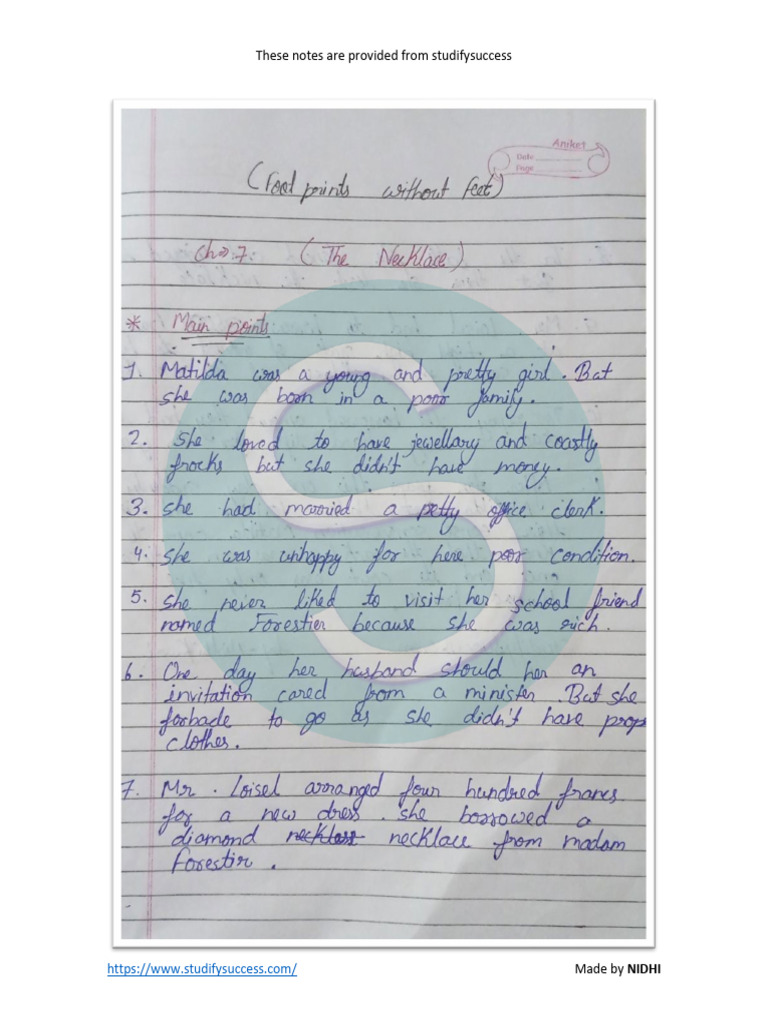 These notes are provided from studifysuccess
Aniket
Date
Page
(Foot points without feet)
Ch⇒7. (The Necklace)
* Main points
1. Matilda was a young and pretty girl. But
she was born in a poor family.
2. She loved to have jewellary and coastly
frocks but she didn't have money.
3. She had married a petty office clerk.
4. She was unhappy for here poor condition.
5. She never liked to visit her school friend
named Forestier because she was rich.
6. One day her husband should her an
invitation cared from a minister. But she
forbade to go as she didn't have prop
clothes.
7. Mr. Loisel arranged four hundred francs
for a new dress. she borrowed a
diamond necklace necklace from madam
Forestir.
https://www.studifysuccess.com/
Made by NIDHI